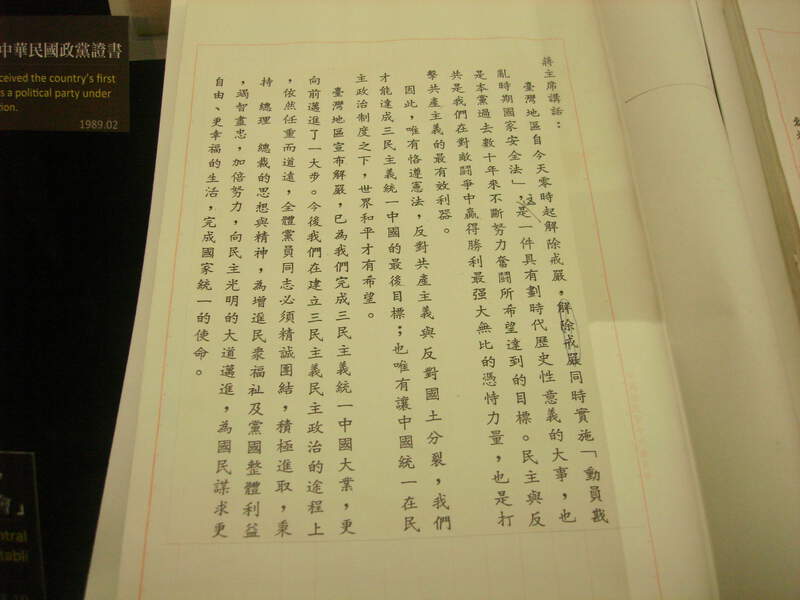 中華民國政黨證書
ceived the country's first
s a political party under
tion.
1989.02
蔣主席講話：
臺灣地區自今天零時起解除戒嚴，解除戒嚴同時實施「動員戡
亂時期國家安全法」，这是一件具有劃時代歷史性意義的大事，也
是本黨過去數十年來不斷努力奮鬪所希望達到的目標。民主與反
共是我們在對敵鬪爭中贏得勝利最強大無比的憑恃力量，也是打
擊共產主義的最有效利器。
因此，唯有恪遵憲法，反對共產主義與反對國土分裂，我們
才能達成三民主義統一中國的最後目標；也唯有讓中國統一在民
主政治制度之下，世界和平才有希望。
臺灣地區宣布解嚴，已為我們完成三民主義統一中國大業，更
向前邁進了一大步。今後我們在建立三民主義民主政治的途程上
，依然任重而道遠，全體黨員同志必須精誠團結，積極進取，秉
持　總理　總裁的思想與精神，為增進民衆福祉及黨國整體利益
，竭智盡忠，加倍努力，向民主光明的大道邁進，為國民謀求更
自由、更幸福的生活，完成國家統一的使命。
會」
ntral
tabli